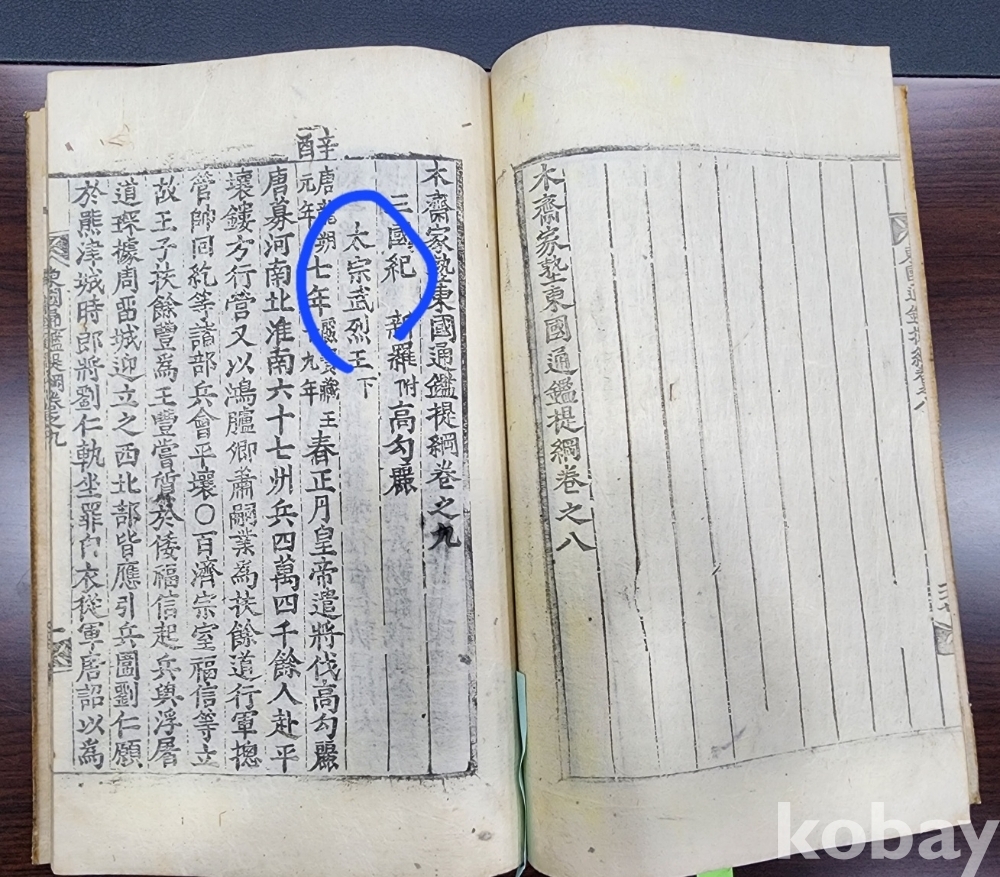 木齋家塾東國通鑑提綱卷之八
木齋家塾東國通鑑提綱卷之九
三國紀 新羅 附高勾麗
太宗武烈王下
辛酉
唐龍朔元年七年麗寶藏王九年春正月皇帝遣將伐高勾麗
唐募河南北淮南六十七州兵四萬四千餘人赴平
壤鏤方行營又以鴻臚卿蕭嗣業爲扶餘道行軍摠
管帥回紇等諸部兵會平壤○百濟宗室福信等立
故王子扶餘豐爲王豐嘗質於倭福信起兵與浮屠
道琛據周留城迎立之西北部皆應引兵圍劉仁願
於熊津城時郎將劉仁軌坐罪白衣從軍唐詔以爲
東國通鑑提綱卷之九
kobay